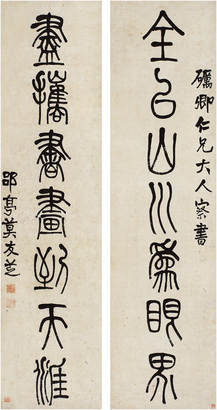 礪卿仁兄大人察書
全以山川為眼界
盡攜書畫到天涯
郘亭莫友芝